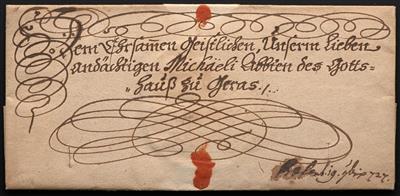 Dem Ehrsamen Geistlichen, Unserm lieben
andächtigen Michaeli Abbten des Gotts-
hauß zu Geras ./.
19. 9bris 727.